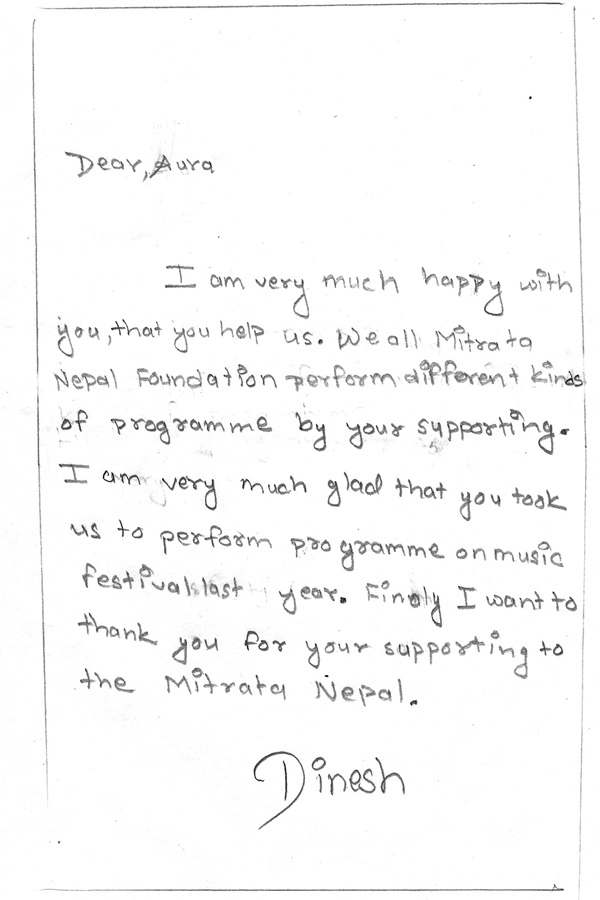 Dear, Aura
I am very much happy with
you, that you help us. We all Mitrata
Nepal Foundation perform different kinds
of programme by your supporting.
I am very much glad that you took
us to perform programme on music
festival last year. Finaly I want to
thank you for your supporting to
the Mitrata Nepal.
Dinesh